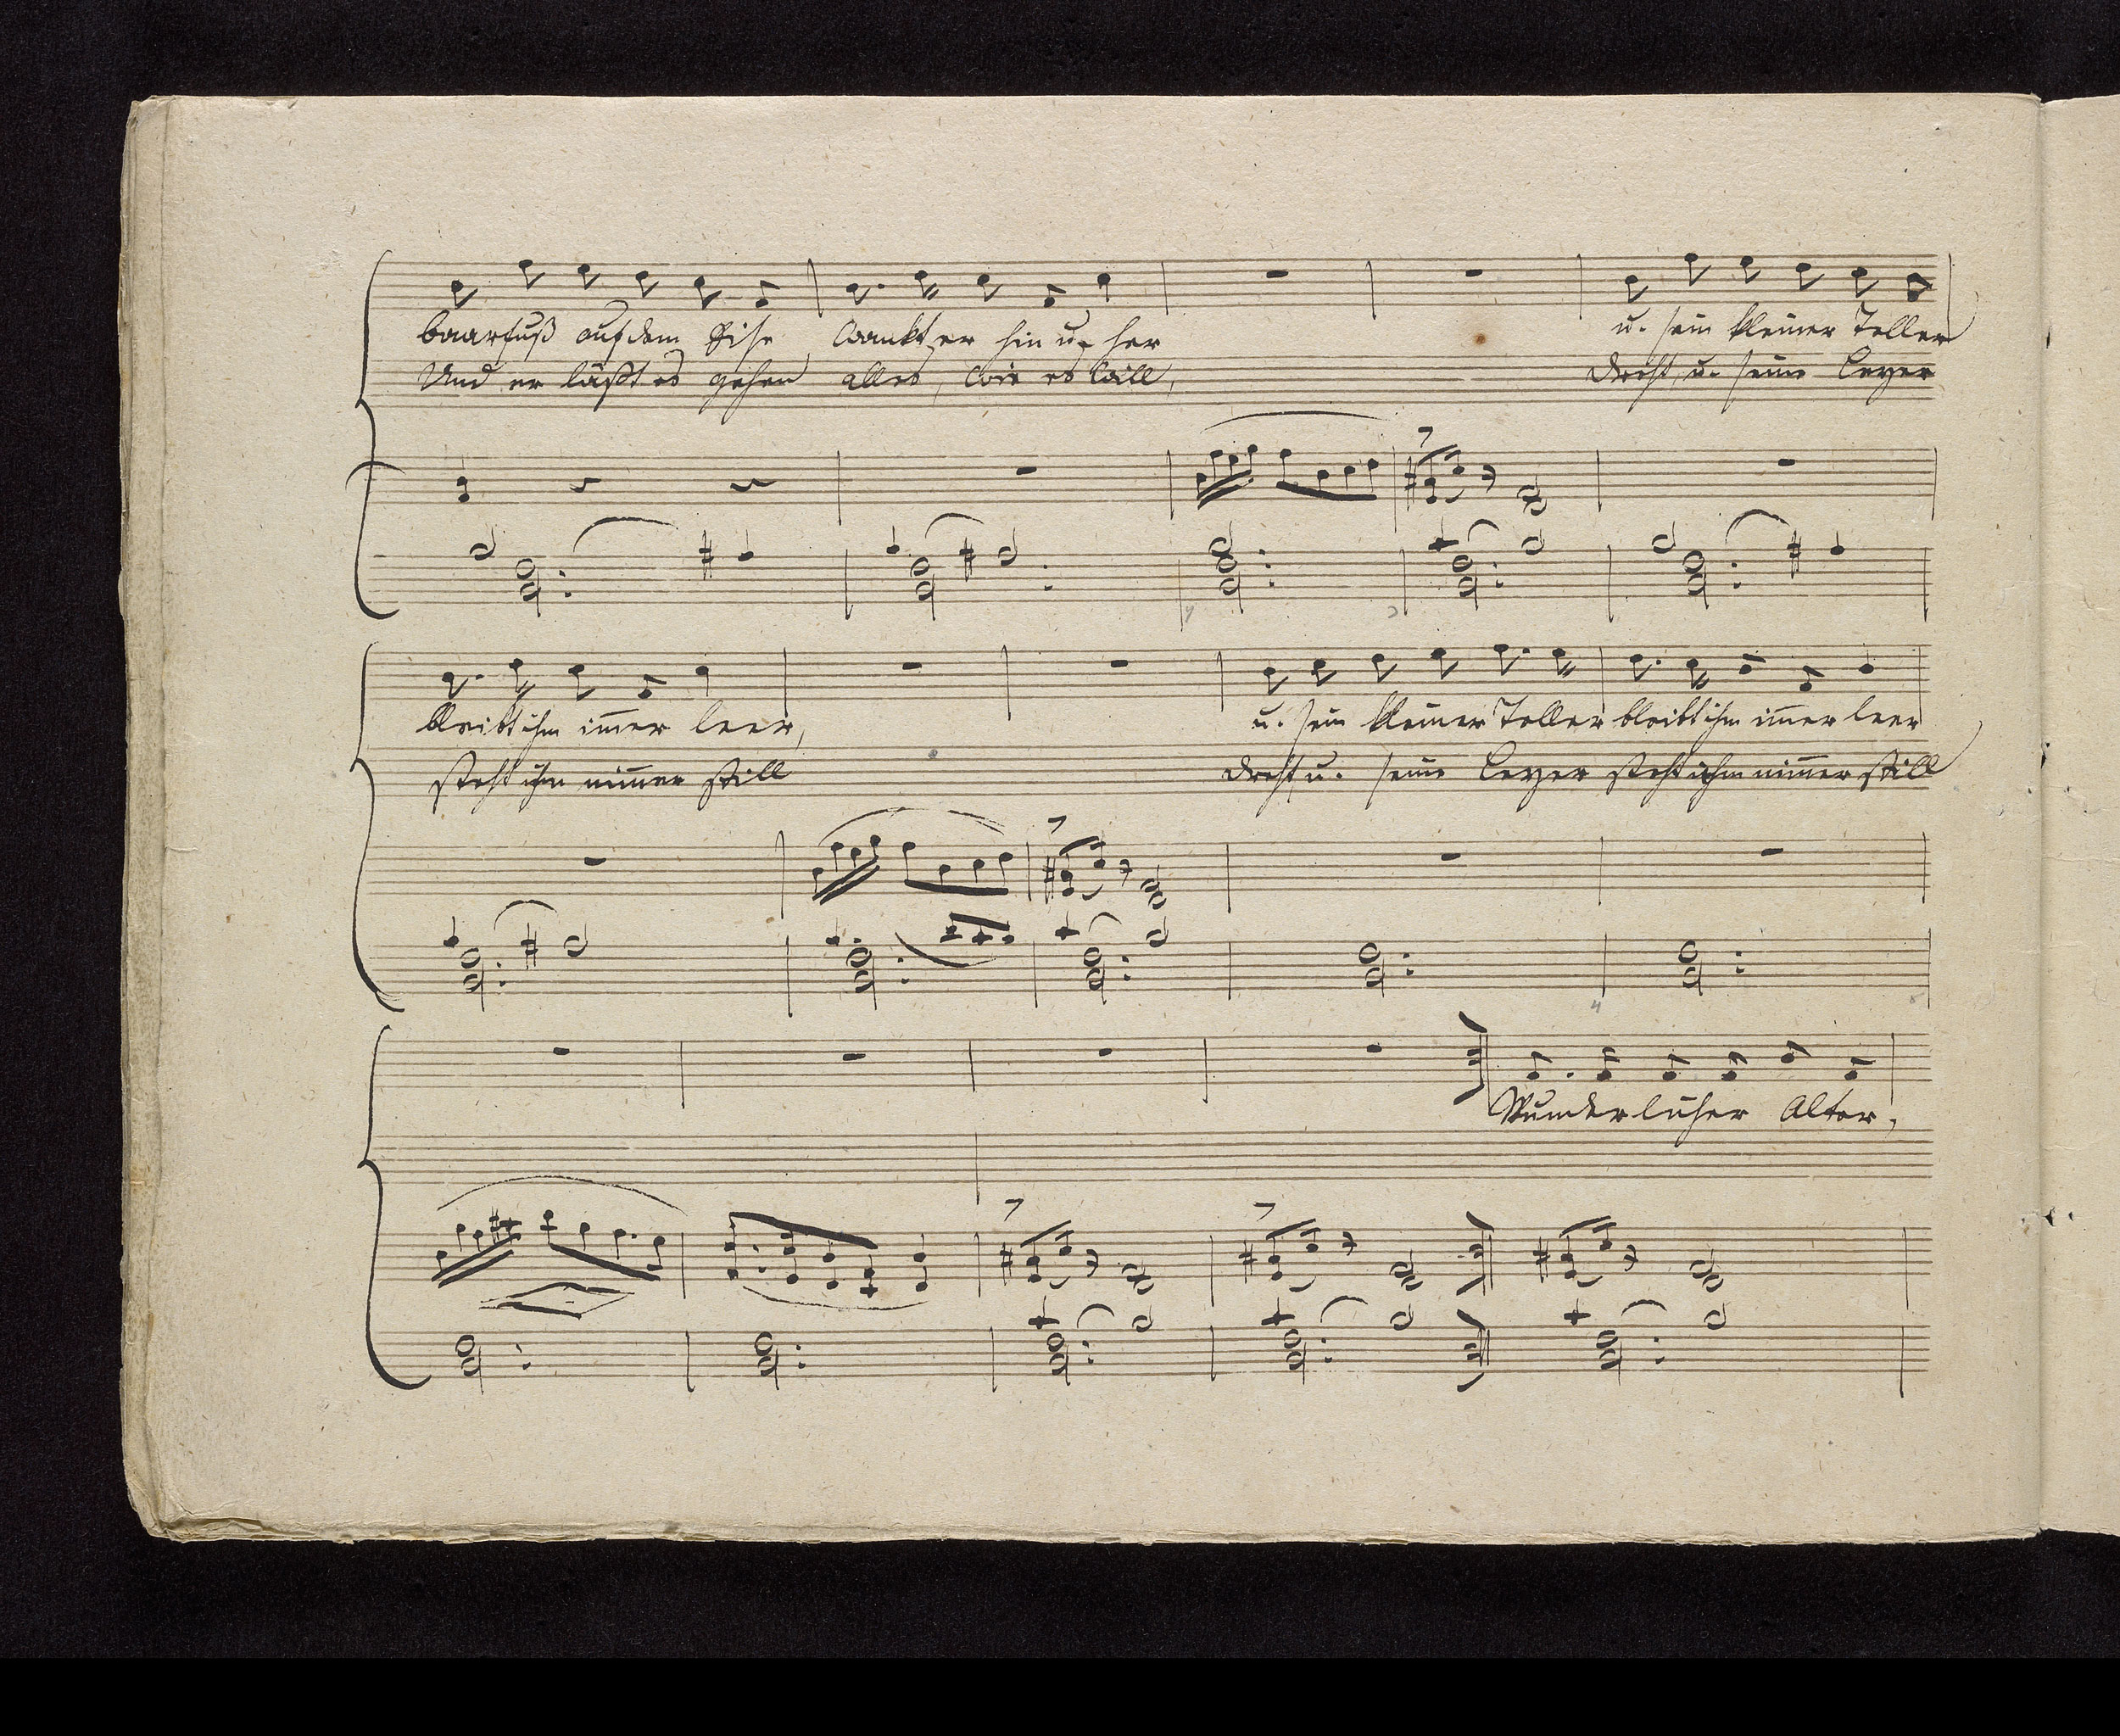 baarfuß auf dem Eise wankt er hin u. her u. sein kleiner Teller
Und er läßt es gehen alles, wie es will, dreht, u. seine Leyer
bleibt ihm im̅er leer, u. sein kleiner Teller bleibt ihm im̅er leer
steht ihm nim̅er still dreht u. seine Leyer steht ihm nim̅er still
Wunderlicher Alter,